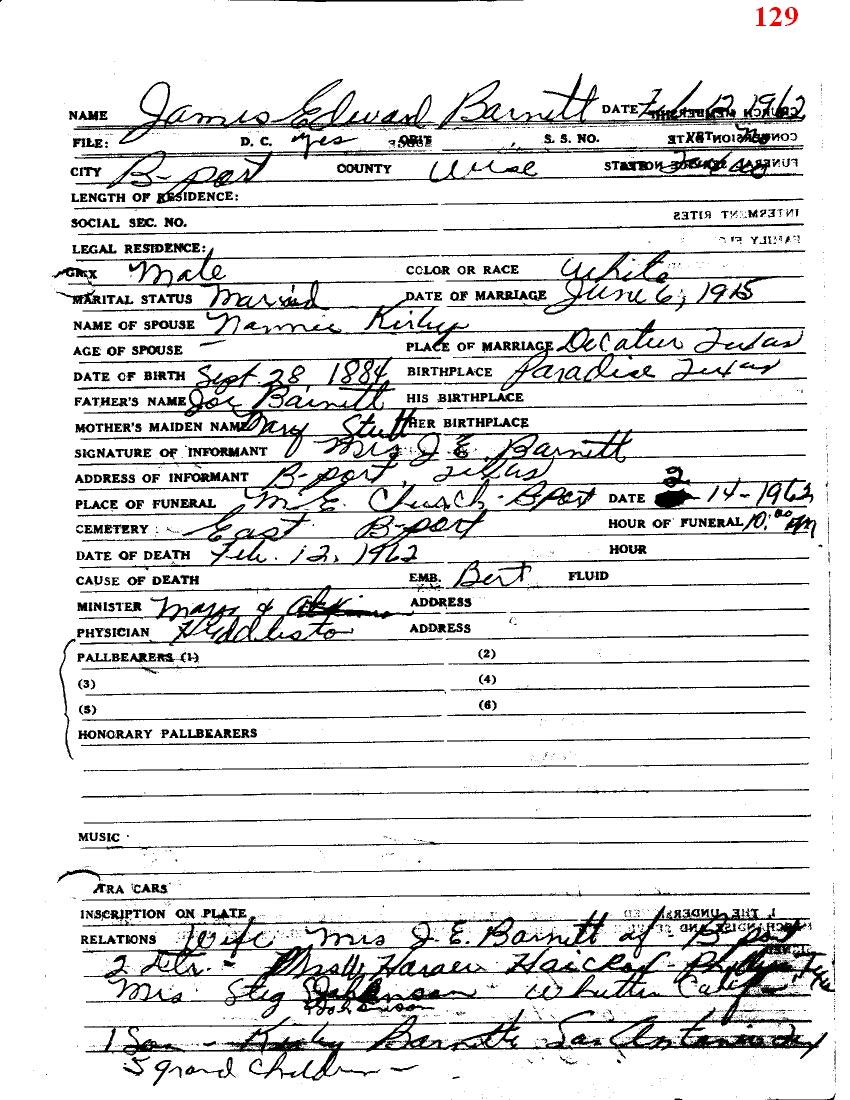 129
NAME James Edward Barnett DATE Feb 12 1962
FILE: D. C. yes S. S. NO.
CITY B-port COUNTY Wise
LENGTH OF RESIDENCE:
SOCIAL SEC. NO.
INTERSMENT RITES
LEGAL RESIDENCE:
SEX Male COLOR OR RACE White
MARITAL STATUS Married DATE OF MARRIAGE June 6, 1915
NAME OF SPOUSE Nannie Kirby
AGE OF SPOUSE — PLACE OF MARRIAGE Decatur Texas
DATE OF BIRTH Sept 28, 1884 BIRTHPLACE Paradise Texas
FATHER'S NAME Joe Barnett HIS BIRTHPLACE
MOTHER'S MAIDEN NAME Mary HER BIRTHPLACE
SIGNATURE OF INFORMANT Mrs J. E. Barnett
ADDRESS OF INFORMANT B-port, Texas
PLACE OF FUNERAL M E. Church - BPort DATE 2 - 14 - 1962
CEMETERY East B-port HOUR OF FUNERAL 10:00 AM
DATE OF DEATH Feb. 12, 1962 HOUR
CAUSE OF DEATH EMB. Bert FLUID
MINISTER & ADDRESS
PHYSICIAN ADDRESS
PALLBEARERS (1) (2)
(3) (4)
(5) (6)
HONORARY PALLBEARERS
MUSIC
TRA CARS
INSCRIPTION ON PLATE
RELATIONS Wife Mrs J. E. Barnett of B-port
2 Dtr. -
Mrs Stig Johanson - Whittier Calif
Johanson
1 Son - Kirby Barnett San Antonio Tex
5 grand children -